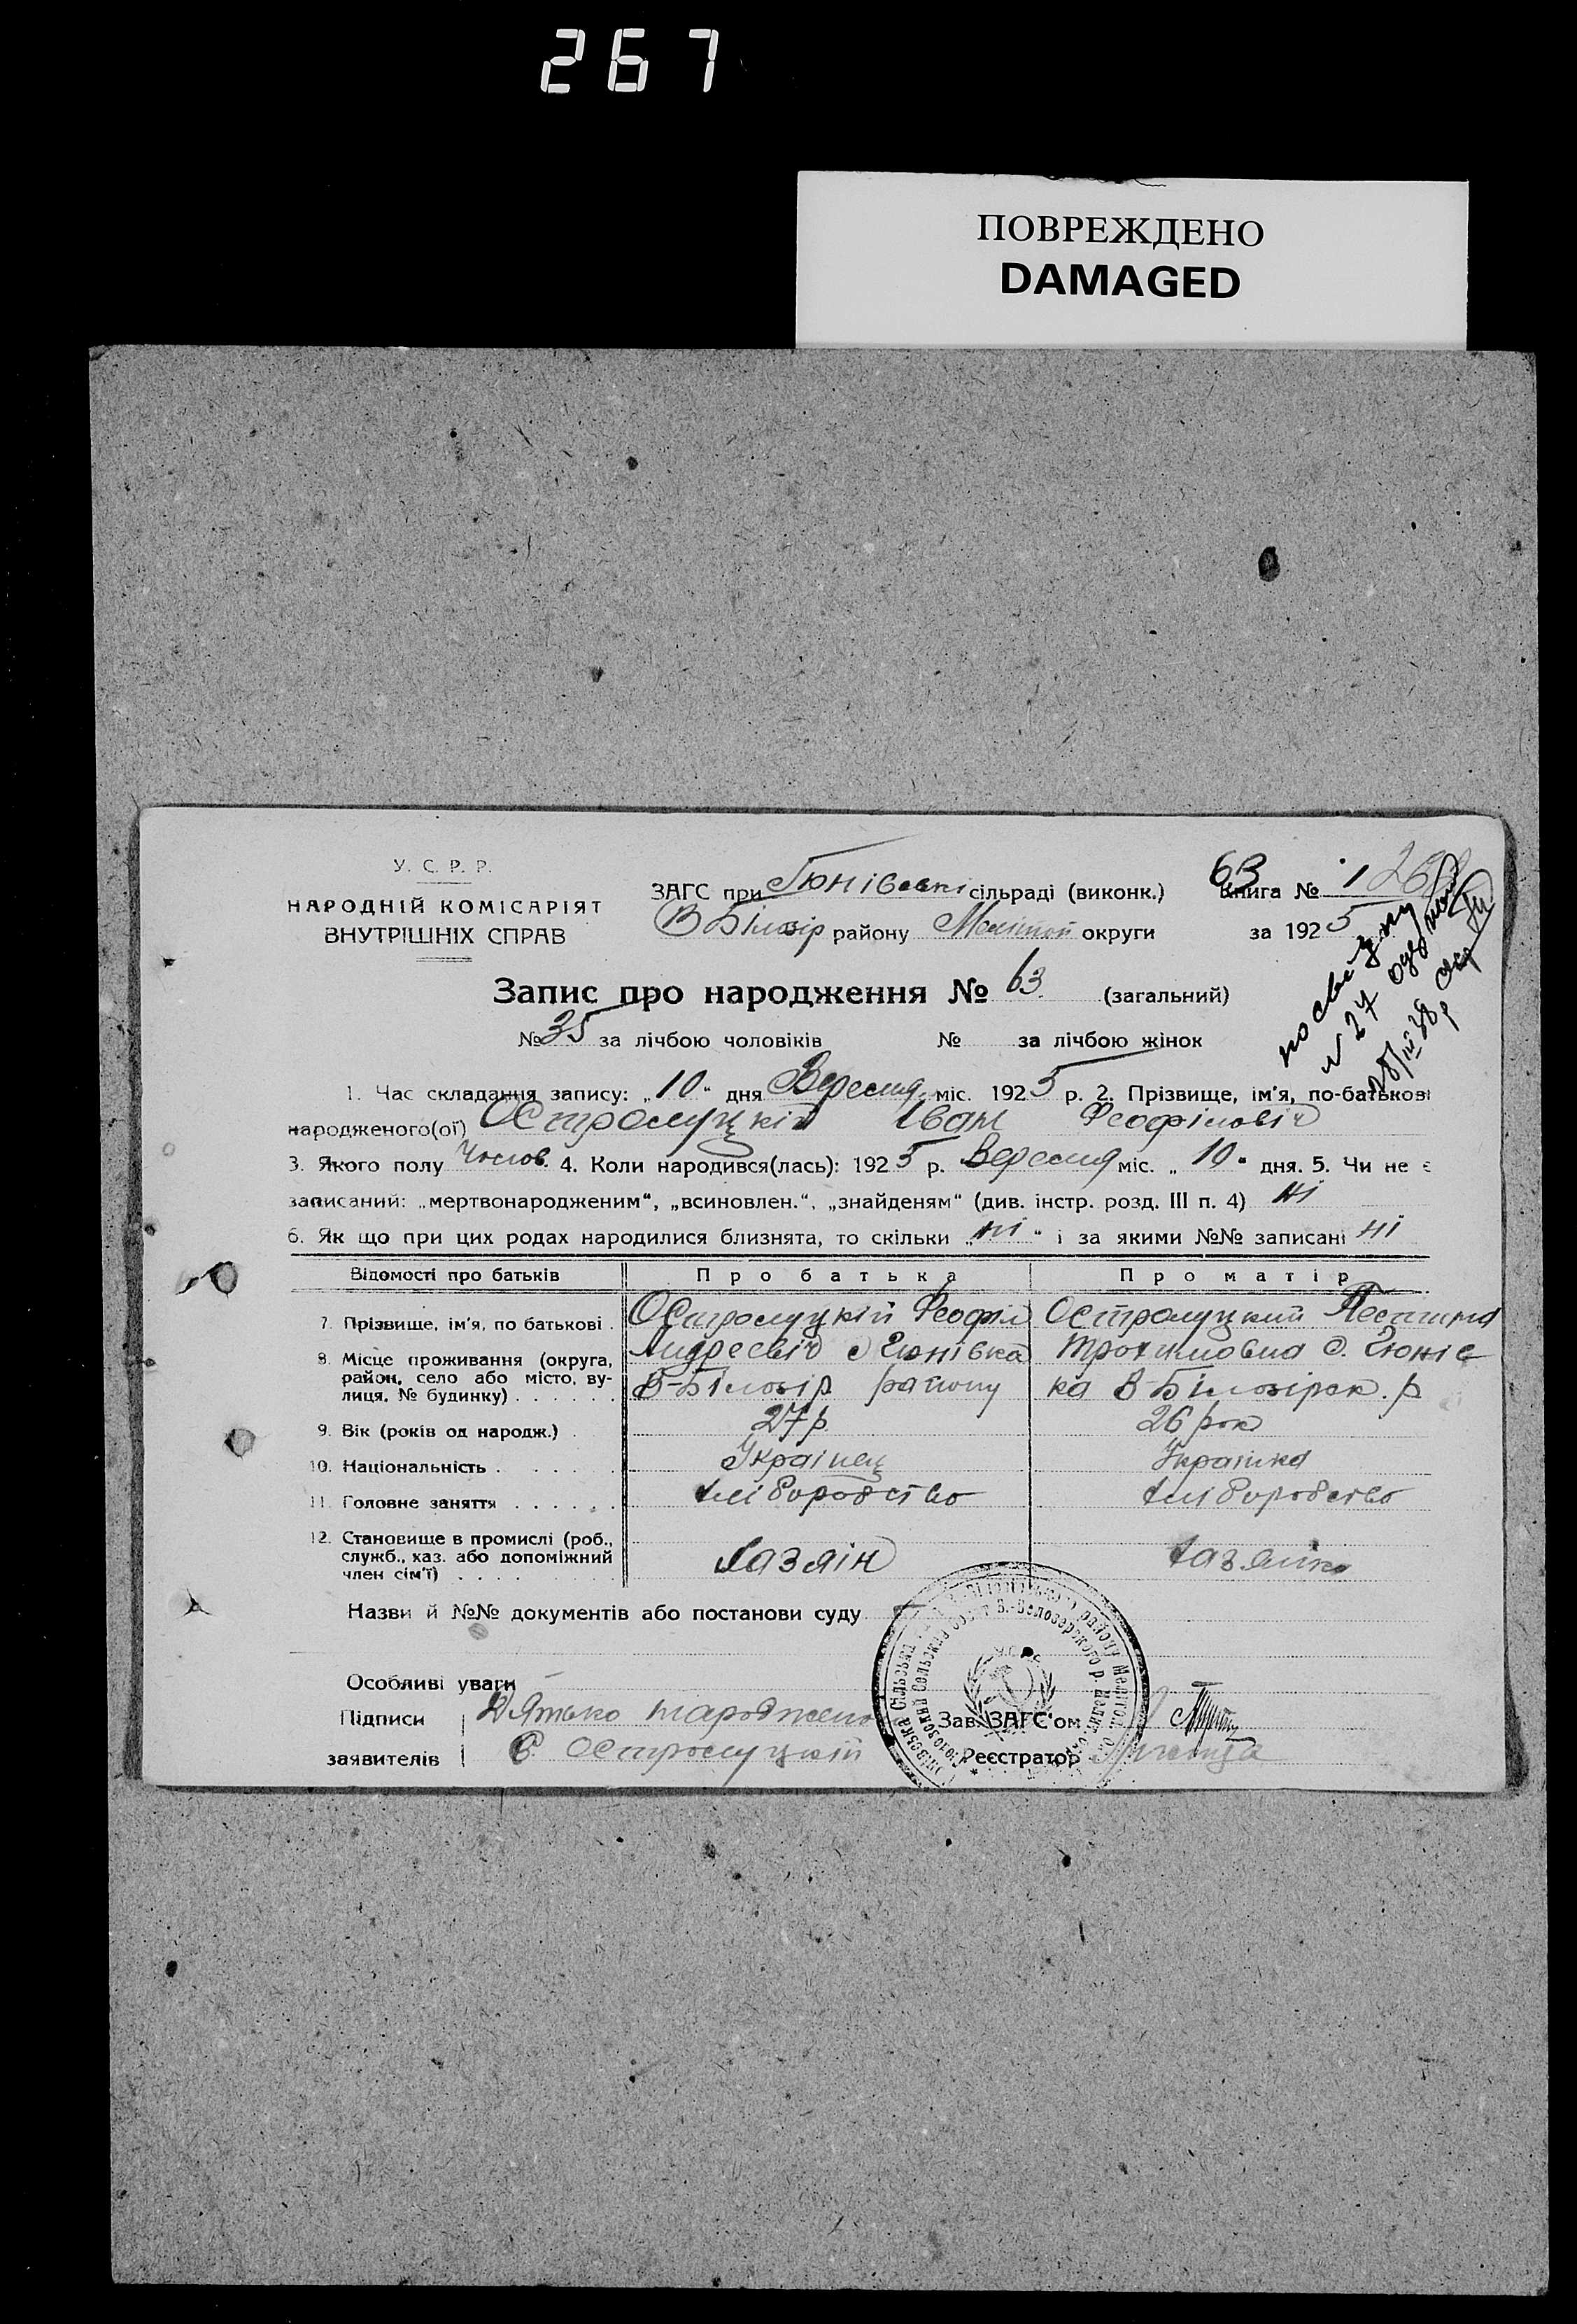 267
ПОВРЕЖДЕНО
DAMAGED
У. С. Р. Р.
НАРОДНІЙ КОМІСАРІЯТ
ВНУТРІШНІХ СПРАВ
ЗАГС при Гюнівські сільраді (виконк.)
В Білозір району Меліто­п округи
63
Книга № 1
за 1925
Запис про народження № 63. (загальний)
№ 35 за лічбою чоловіків № за лічбою жінок
1. Час складання запису: „10“ дня Вересня міс. 1925 р. 2. Прізвище, ім'я, по-батькові
народженого(ої) Остролуцкій Іван Феофіловіч
3. Якого полу Чолов. 4. Коли народився(лась): 1925 р. Вересня міс. „10“ дня. 5. Чи не є
записаний: „мертвонародженим“, „всиновлен.“, „знайденям“ (див. інстр. розд. III п. 4) ні
6. Як що при цих родах народилися близнята, то скільки „ні“ і за якими №№ записані ні
Відомості про батьків Про батька Про матір
7. Прізвище, ім'я, по батькові . Остролуцкій Феофіл Остролуцкий
8. Місце проживання (округа, Андреєвіч с Гюнівка Трохимовна с. Гюнів
район, село або місто, вулиця, № будинку) В-Білозір району ка В-Білозірск. р
9. Вік (років од народж.) . 27 р. 26 рок
10. Національність . Українец Українка
11. Головне заняття . хліборобство хліборобство
12. Становище в промислі (роб.,
служб., хаз. або допоміжний Хазяін Хазяйка
член сім'ї) . . . .
Назви й №№ документів або постанови суду
Особливі уваги
Підписи
заявителів Остролуцкій
Зав. ЗАГС'ом
Реєстратор